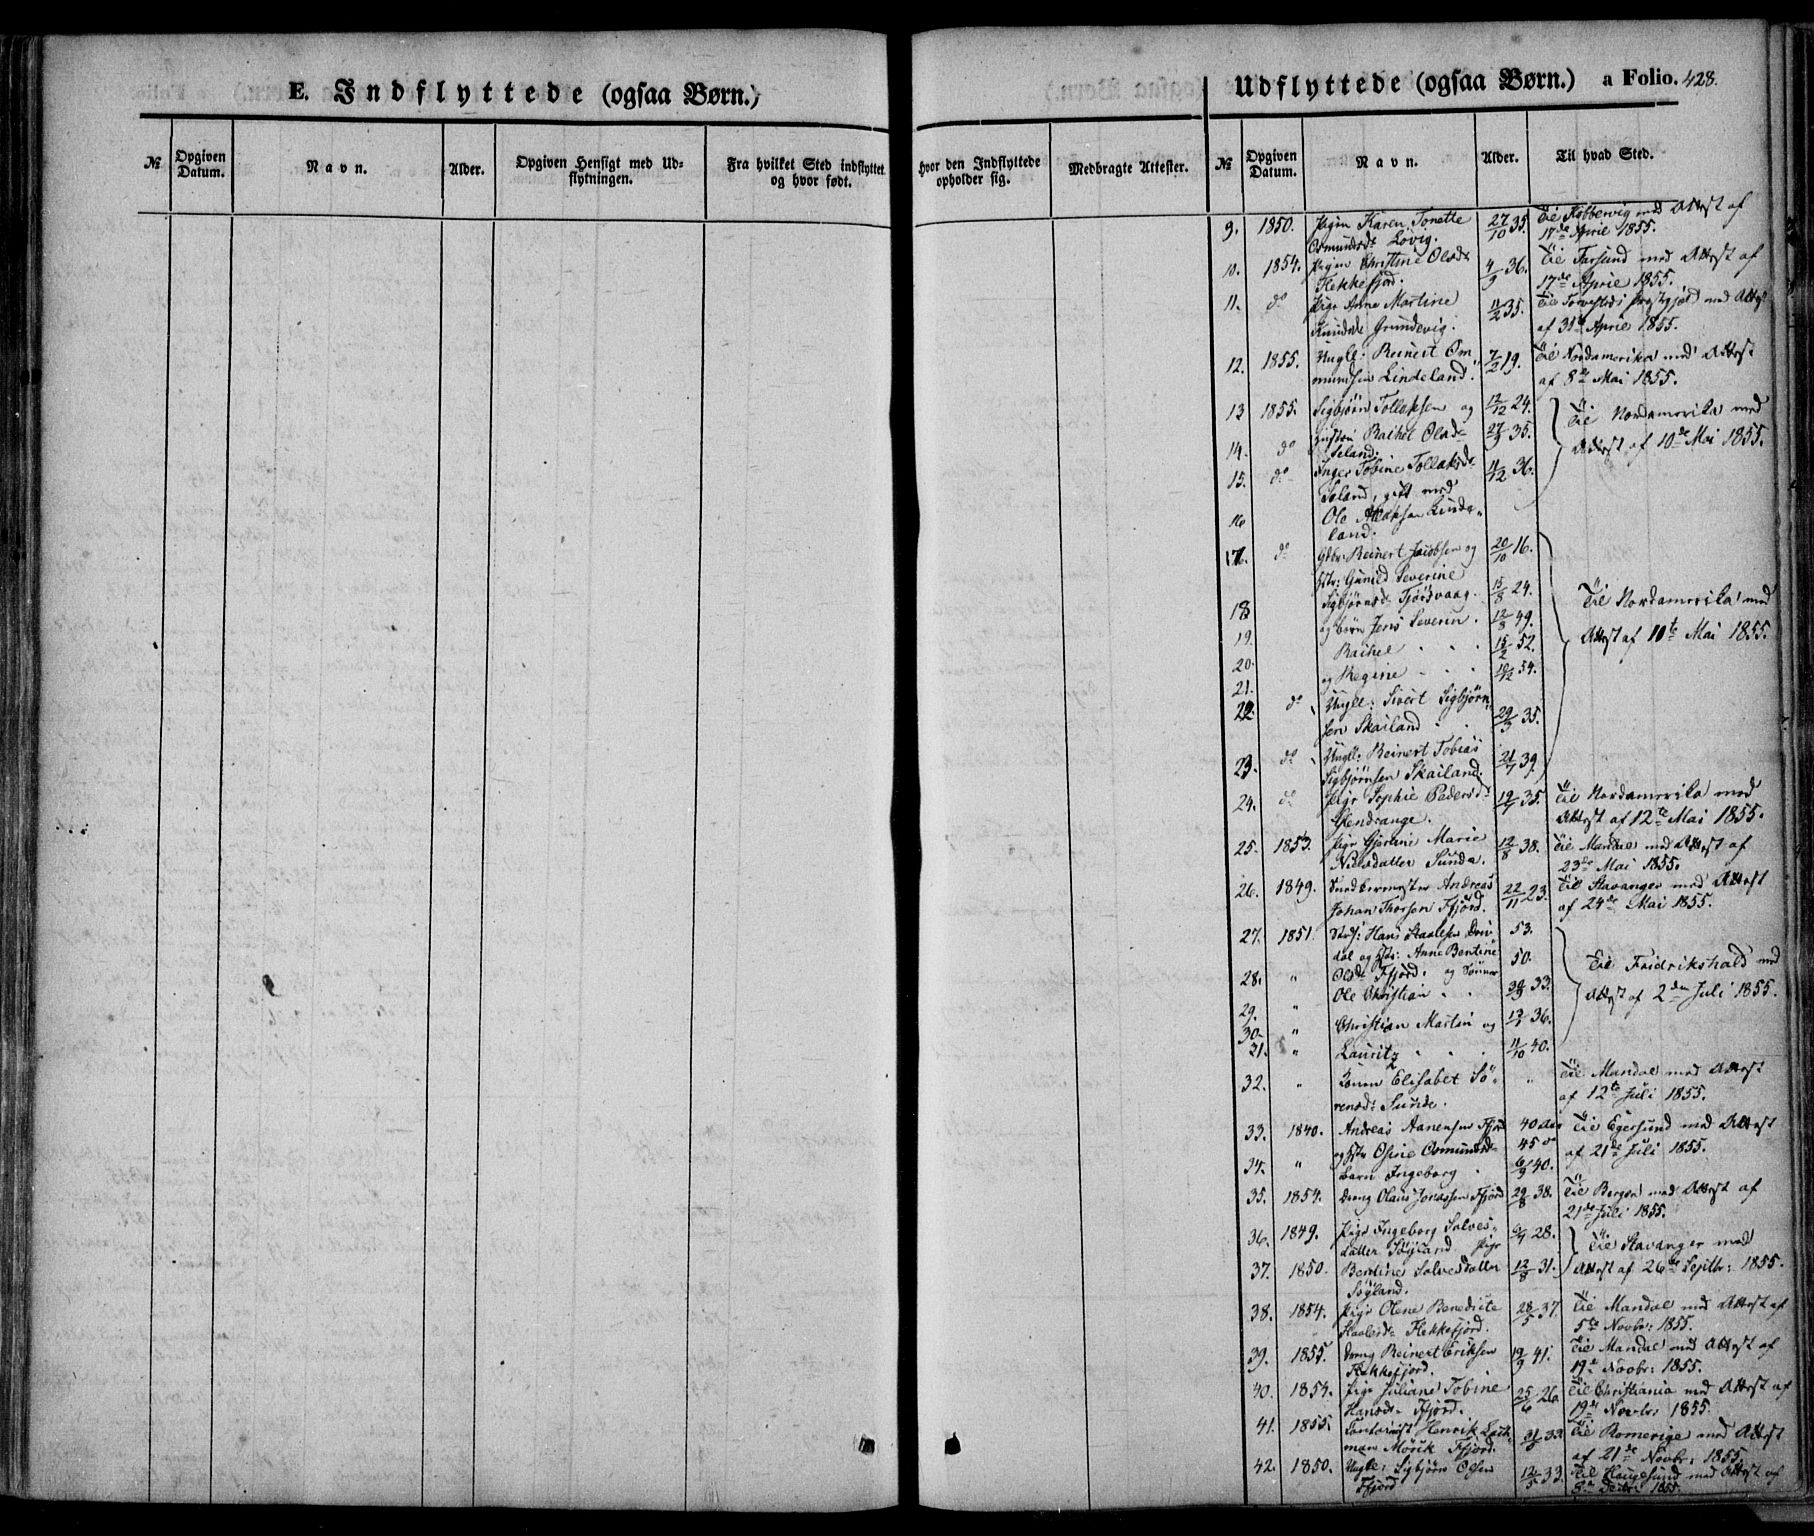 E. Indflyttede (ogsaa Børn.)
Udflyttede (ogsaa Børn.) a Folio. 428.
№ Opgiven Datum. Navn. Alder. Opgiven Hensigt med Udflytningen. Fra hvilket Sted indflyttet og hvor født. Hvor den Indflyttede opholder sig. Medbragte Attester. № Opgiven Datum. Navn. Alder. Til hvad Sted.
9. 1850. Pigen Karen Tonette 27/10 35. Til Kobbervig med Attest af
Osmundsdt Lovig. 17de April 1855.
10. 1854. Pigen Christine Olsdt 4/9 36. Til Farsund med Attest af
Flekkefjord. 17de April 1855.
11. do Pige Anne Martine 11/2 35. Til Torvestads Præstgjeld med Attest
Knudsdt Grundevig. af 31te April 1855.
12. 1855. Ungk: Reinert Om- 7/2 19. Til Nordamerika med Attest
mundsen Lindeland. af 8de Mai 1855.
13 1855. Sigbjørn Tollaksen og 12/12 24. Til Nordamerika med
14. do Hustru Rachel Olsdt 27/9 35. Attest af 10de Mai 1855.
Seland.
15. do Inger Tobine Tollaksdt 11/12 36.
Seland, gift med
16 Ole Aslaksen Linde-
land.
17. do Gdbr: Reinert Jacobsen og 20/10 16.
Hstr: Gunild Severine
18 Sigbjørnsdt Fjordvaag. 15/8 24. Til Nordamerika med
19. og børn Jens Severin. 12/8 49. Attest af 10te Mai 1855.
20. Rachel 15/2 52.
21. og Regine 10/12 54.
22. do Ungk: Sivert Sigbjørn-
sen Skailand 29/3 35.
23. do Ungk: Reinert Tobias 21/7 39.
Sigbjørnsen Skailand.
24. do Pige Sophie Pedersdt 19/7 35. Til Nordamerika med
Stendrange. Attest af 12te Mai 1855.
25. 1853. Pige Gjertine Marie 12/8 38. Til Mandal med Attest af
Nilsdatter Sunde. 23de Mai 1855.
26. 1849. Andreas 22/11 23. Til Stavanger med Attest
Johan Thorsen Ffjord. af 24de Mai 1855.
27. 1851. Hans Staalesen 53.
dal og Hstr: Anne Bentine 50. Til Fridrikshald med
28. " Olsdt Ffjord. og Sønner Attest af 2den Juli 1855.
29. " Ole Christian 33.
30. " Christian Martin og 36.
31. " Lauritz 11/10 40.
32. " Konen Elisabet Sö- " Til Mandal med Attest
rensdt Sunde. af 12te Juli 1855.
33. 1840. Andreas Aanensen Ffjord 40 Til Egersund med Attest
34. " og Hstr Osmundsdt 45 af 21de Juli 1855.
Barn Ingeborg 6/9 40.
35. 1854. Dreng Olaus Jonassen Ffjord 29/8 38. Til Bergen med Attest af
21de Juli 1855.
36. 1849. Pige Ingeborg Salves- 28. Til Stavanger med
datter Søyland. Pige Attest af 26de Septbr: 1855.
37. 1850. Bentine Salvesdatter 12/8 31.
Søyland.
38. 1854. Pige Olene Benedicte 28/5 37. Til Mandal med Attest af
Staalesdt Flekkefjord. 5te Novbr: 1855.
39. 1855. Dreng Reinert Eriksen 19/9 41. Til Mandal med Attest af
Flekkefjord. 19de Novbr: 1855.
40. 1854. Pige Juliane Tobine 25/6 26. Til Christiania med Attest af
Hansdt Ffjord. 19de Novbr: 1855.
41. 1855. Contorist Henrik 33. Til Romerige med Attest
man Morik Ffjord. af 21de Novbr: 1855.
42. 1850. Ungk: Sigbjørn Olsen 12/5 33. Til Haugesund med Attest af
Ffjord 8de Decbr: 1855.